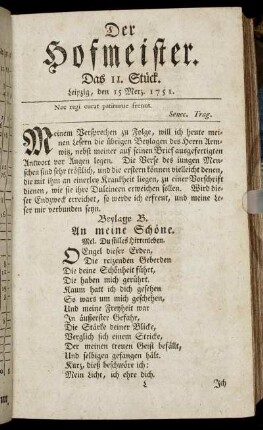 Der
Hofmeister.
Das 11. Stück.
Leipzig, den 15 Merz. 1751.
Nos regi vocat patiamur
Senec. Trag.
Meinem Versprechen zu Folge, will ich heute mei-
nen Lesern die übrigen Beylagen des Herrn Arm-
witz, nebst meiner auf seinen Brief ausgefertigten
Antwort vor Augen legen. Die Verse des jungen Men-
schen sind sehr tröstlich, und die erstern können vielleicht denen,
die mit ihm an einerley Krankheit liegen, zu einer Vorschrift
dienen, wie sie ihre Dulcineen erweichen sollen. Wird die-
ser Endzweck erreichet, so werde ich erfreut, und meine Le-
ser mir verbunden seyn.
Beylage B.
An meine Schöne.
Mel. Du stilles Hirtenleben.
O Engel dieser Erden,
Die reizenden Geberden
Die deine Schönheit führt,
Die haben mich gerührt.
Kaum hatt ich dich gesehen
So wars um mich geschehen,
Und meine Freyheit war
In äußerster Gefahr,
Die Stärke deiner Blicke,
Verglich sich einem Stricke,
Der meinen treuen Geist befällt,
Und selbigen gefangen hält.
Kurz, dieß beschwöre ich:
Mein Licht, ich ehre dich.
L
Ich